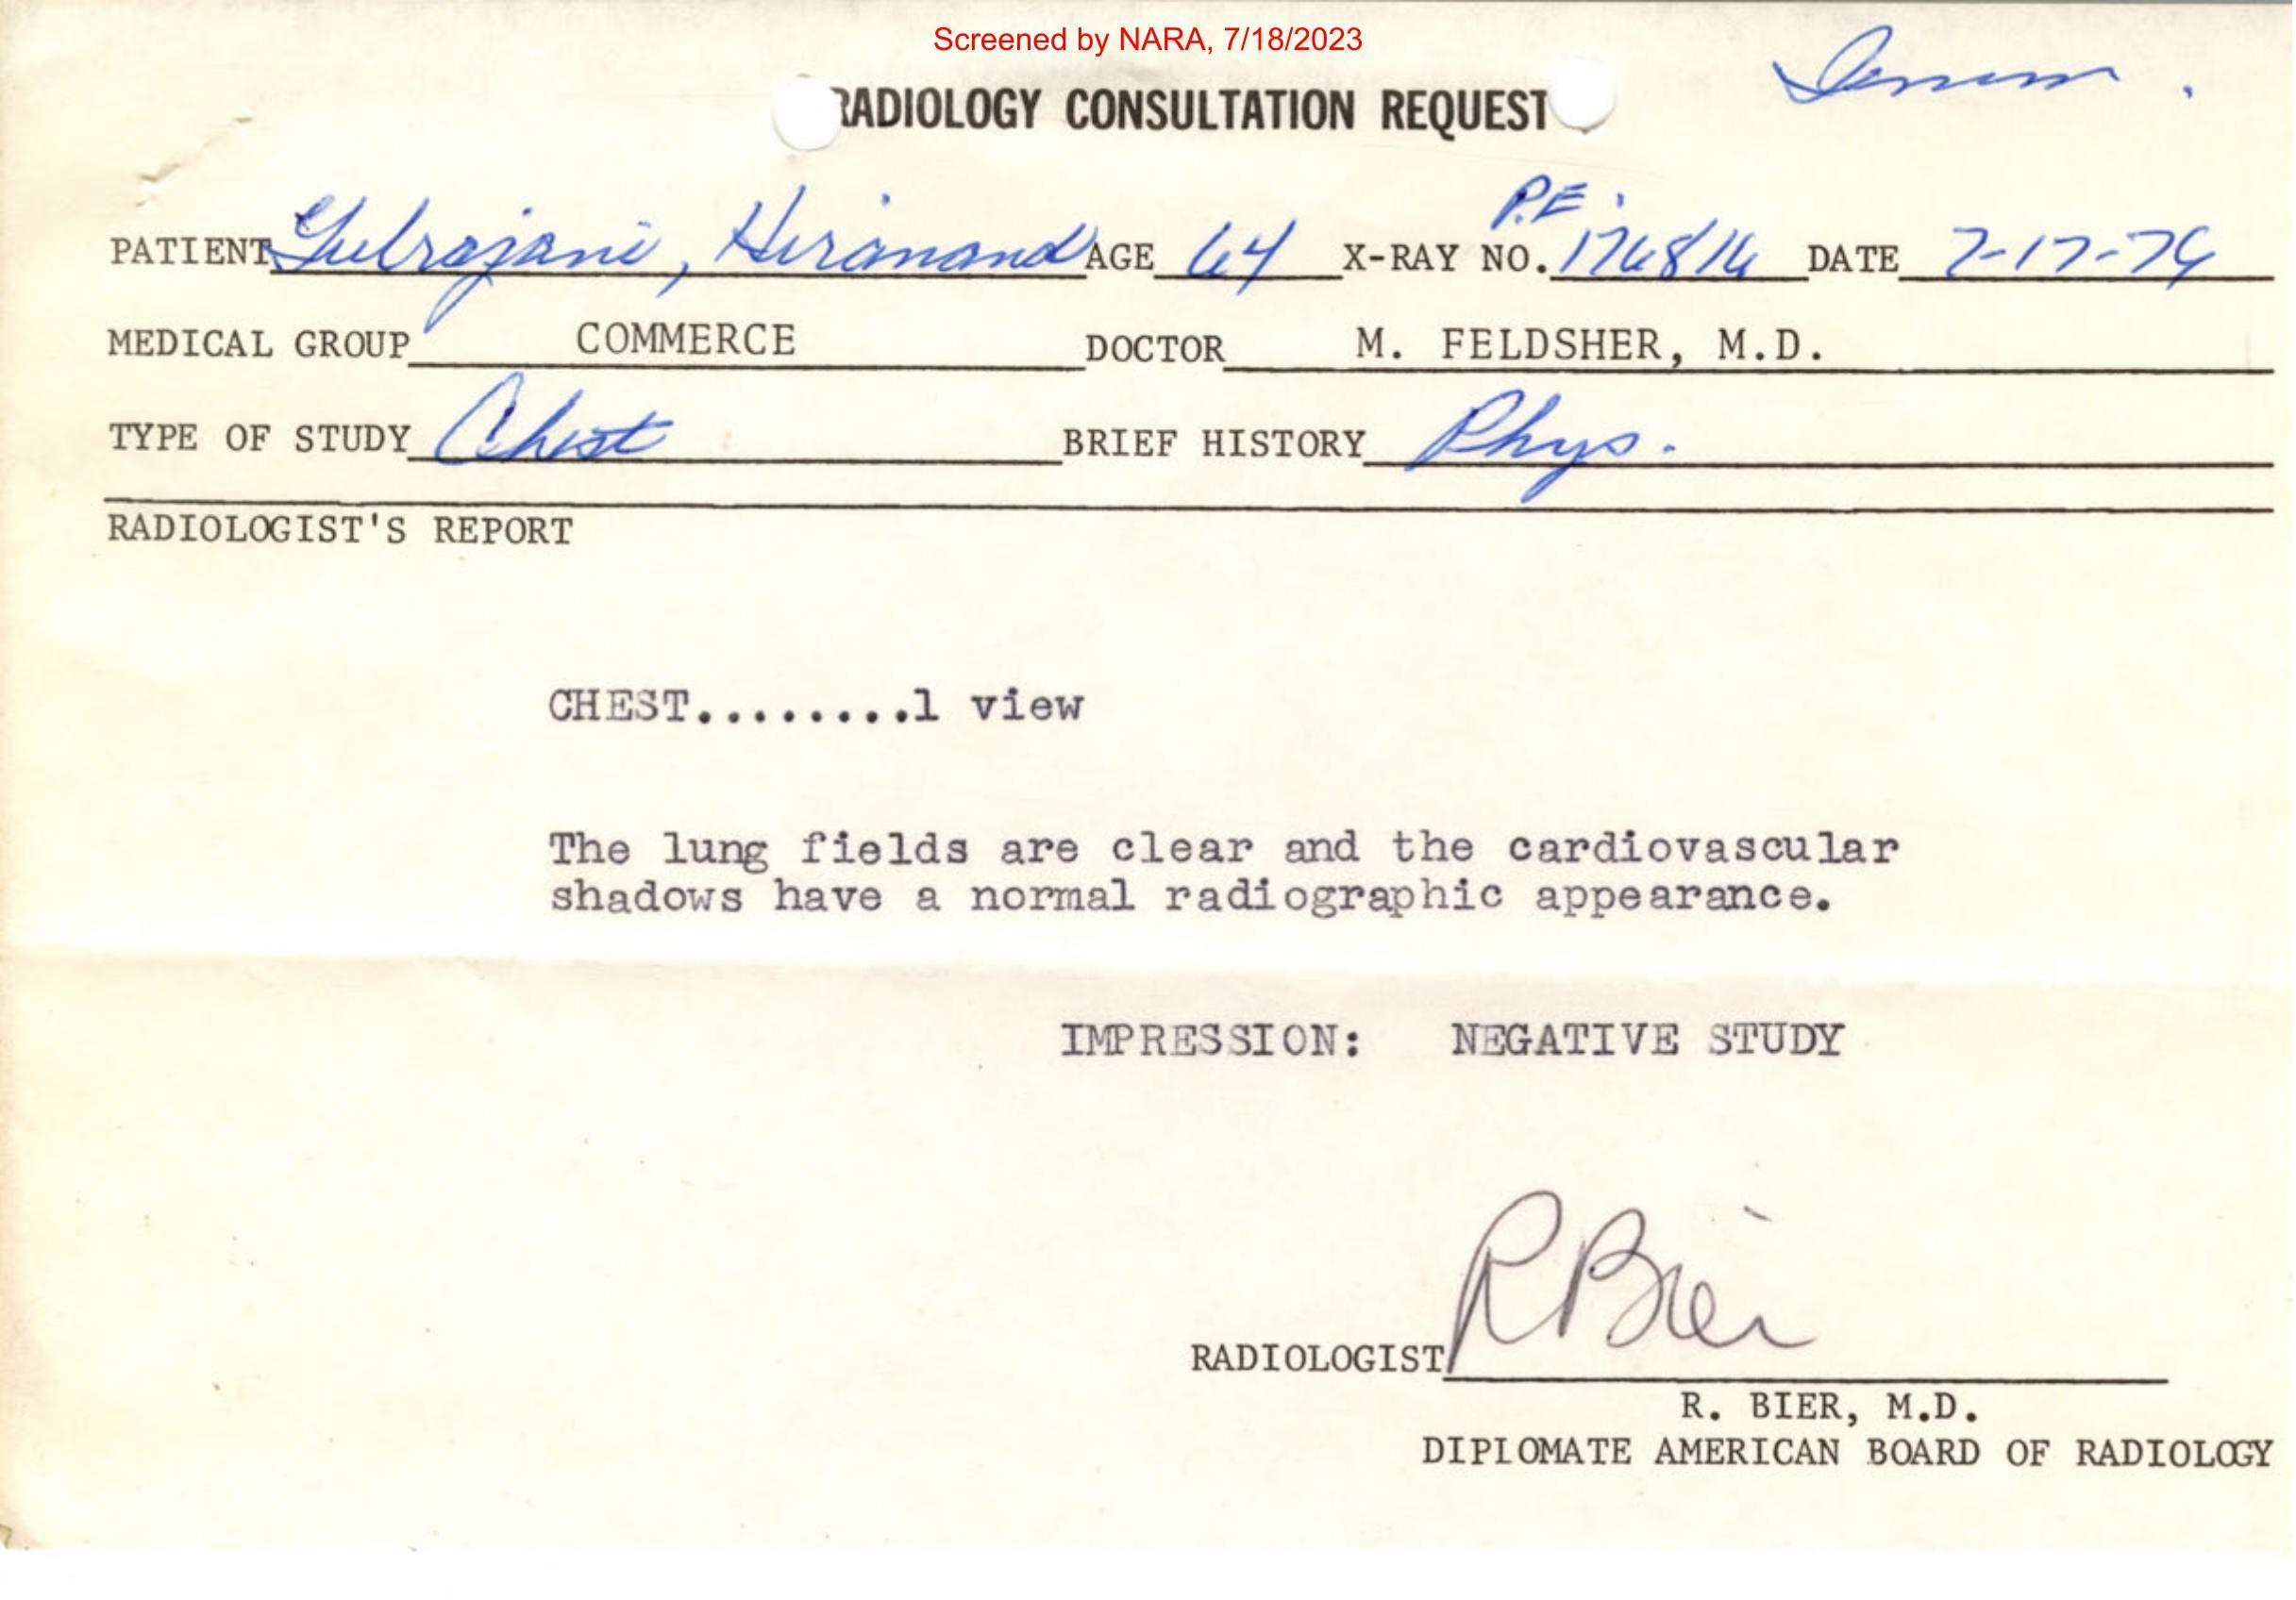 Screened by NARA, 7/18/2023
RADIOLOGY CONSULTATION REQUEST
P.E.
PATIENT Gulrajani, Hiranand AGE 64 X-RAY NO. 176816 DATE 7-17-74
MEDICAL GROUP COMMERCE DOCTOR M. FELDSHER, M.D.
TYPE OF STUDY Chest BRIEF HISTORY Phys.
RADIOLOGIST'S REPORT
CHEST........1 view
The lung fields are clear and the cardiovascular
shadows have a normal radiographic appearance.
IMPRESSION: NEGATIVE STUDY
RADIOLOGIST R Bier
R. BIER, M.D.
DIPLOMATE AMERICAN BOARD OF RADIOLOGY